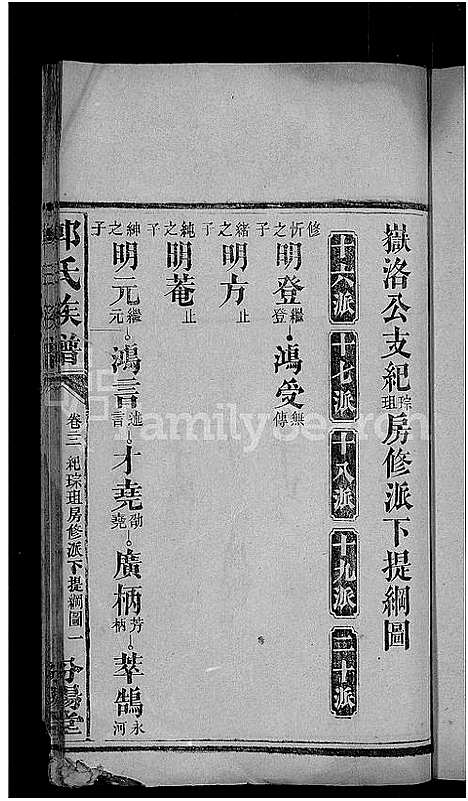 嶽洛公支紀琮珇房修派下提綱圖
十六派 十七派 十八派 十九派 二十派
修忻之子 明登繼登 鴻受無傳
緒之子 明方止
純之子 明菴止
紳之子 明元繼元 鴻言述言 才堯勋堯 廣柄芳柄 萃鵠永河
郭氏族譜
卷三 紀琮珇房修派下提綱圖 一
汾陽堂
Familybe